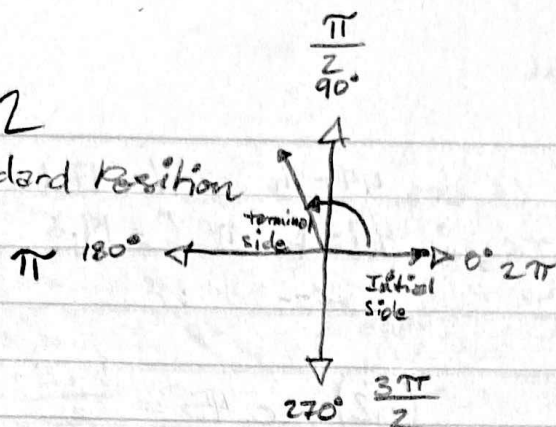 π/2
90°
2
dard Position
terminal side
π 180°
0° 2π
Initial side
270° 3π/2